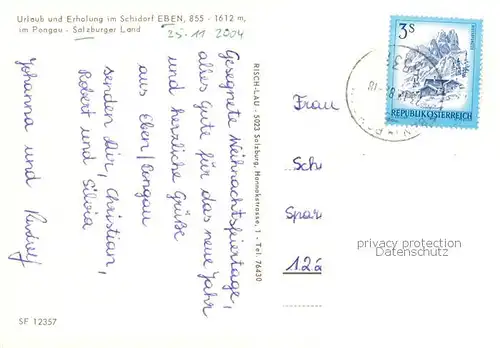 Urlaub und Erholung im Schidorf EBEN, 855 - 1612 m,
im Pongau - Salzburger Land
25.11 2004
Gesegnete Weihnachtsfeiertage,
alles Gute für das neue Jahr
und herzliche Grüße
aus Eben/Pongau
senden Dir, Christian,
Robert und Silvia
Johanna und Rudolf
RISCH-LAU - 5023 Salzburg, Hannakstrasse, 1 - Tel. 76430
3S
REPUBLIK ÖSTERREICH
Frau
Sch
Spar
12á
privacy protection
Datenschutz
SF 12357